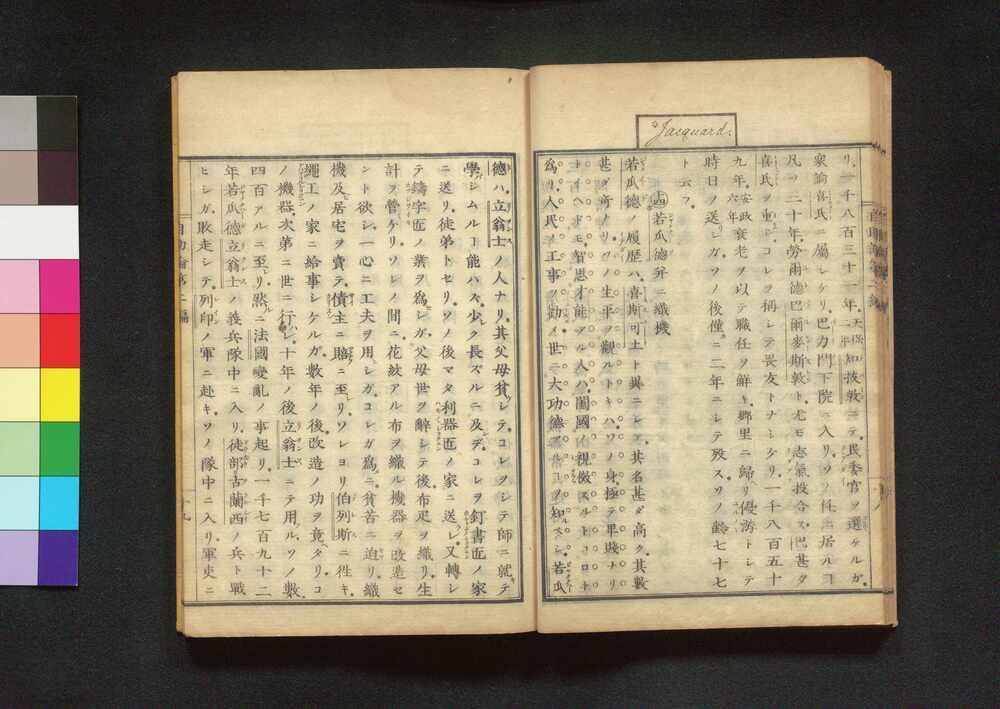 Jacquard.
リ、一千八百三十一年、天保二年知抜敦ニテ、民委官ヲ選ケルガ、
衆喜氏ニ屬シケリ、巴力門下院ニ入リ、ソノ任ニ居ルコ
凡ソ二十年、勞爾德巴爾麥斯敦ト尤モ志氣投合ス、巴甚タ
喜氏ヲ重シ、コレヲ稱シテ畏友トナシケリ、一千八百五十
九年、安政六年衰老ヲ以テ職任ヲ解キ郷里ニ歸リ優游トシテ
時日ヲ送シガ、ソノ後僅ニ二年ニシテ歿ス、ソノ齡七十七
ト云フ、
若瓜德ノ織機
若瓜德ノ履歴ハ、喜斯可土ト異ニシテ、其名甚ダ高ク、其數
甚ダ奇ナリ、ソノ生平ヲ觀ルトキハ、ソノ身極テ卑賤ナリ
トイヘドモ、智思才能アル人ハ、闔國ノ視傚スルトコロト
爲リ、人民ノ工事ヲ勸メ、世ニ大功德アルコヲ知ベシ、若瓜
德ハ、立翁士ノ人ナリ、其父母貧シテ、コレヲシテ師ニ就テ
學シムルコ能ハス、少ク長ズルニ及デ、コレヲ釘書匠ノ家
ニ送リ、徒弟トセリ、ソノ後マタ利器匠ノ家ニ送レ、又轉シ
テ鑄字匠ノ業ヲ爲シガ、父母世ヲ辭シテ後、布疋ヲ織リ、生
計ヲ營ケリ、ソレノ間ニ、花紋アル布ヲ織ル機器ヲ改造セ
ント欲シ、一心ニ工夫ヲ用レシガ、コレガ爲ニ貧苦ニ迫リ、織
機及ビ居宅ヲ賣テ、債主ニ賠ニ至レリ、ソレヨリ伯列斯ニ往キ、
繩工ノ家ニ給事シケルガ、數年ノ後、改造ノ功ヲ竟タリ、コ
ノ機器、次第ニ世ニ行レ、十年ノ後、立翁士ニテ用ル、ソノ數
四百アルニ至レリ、然ニ法國變亂ノ事起リ、一千七百九十二
年、若瓜德立翁士ノ義兵隊中ニ入リ、徒部古蘭西ノ兵ト戰
ヒシガ、敗走シテ、列印ノ軍ニ赴キ、ソノ隊中ニ入リ、軍吏ニ
自助論第二編
十九